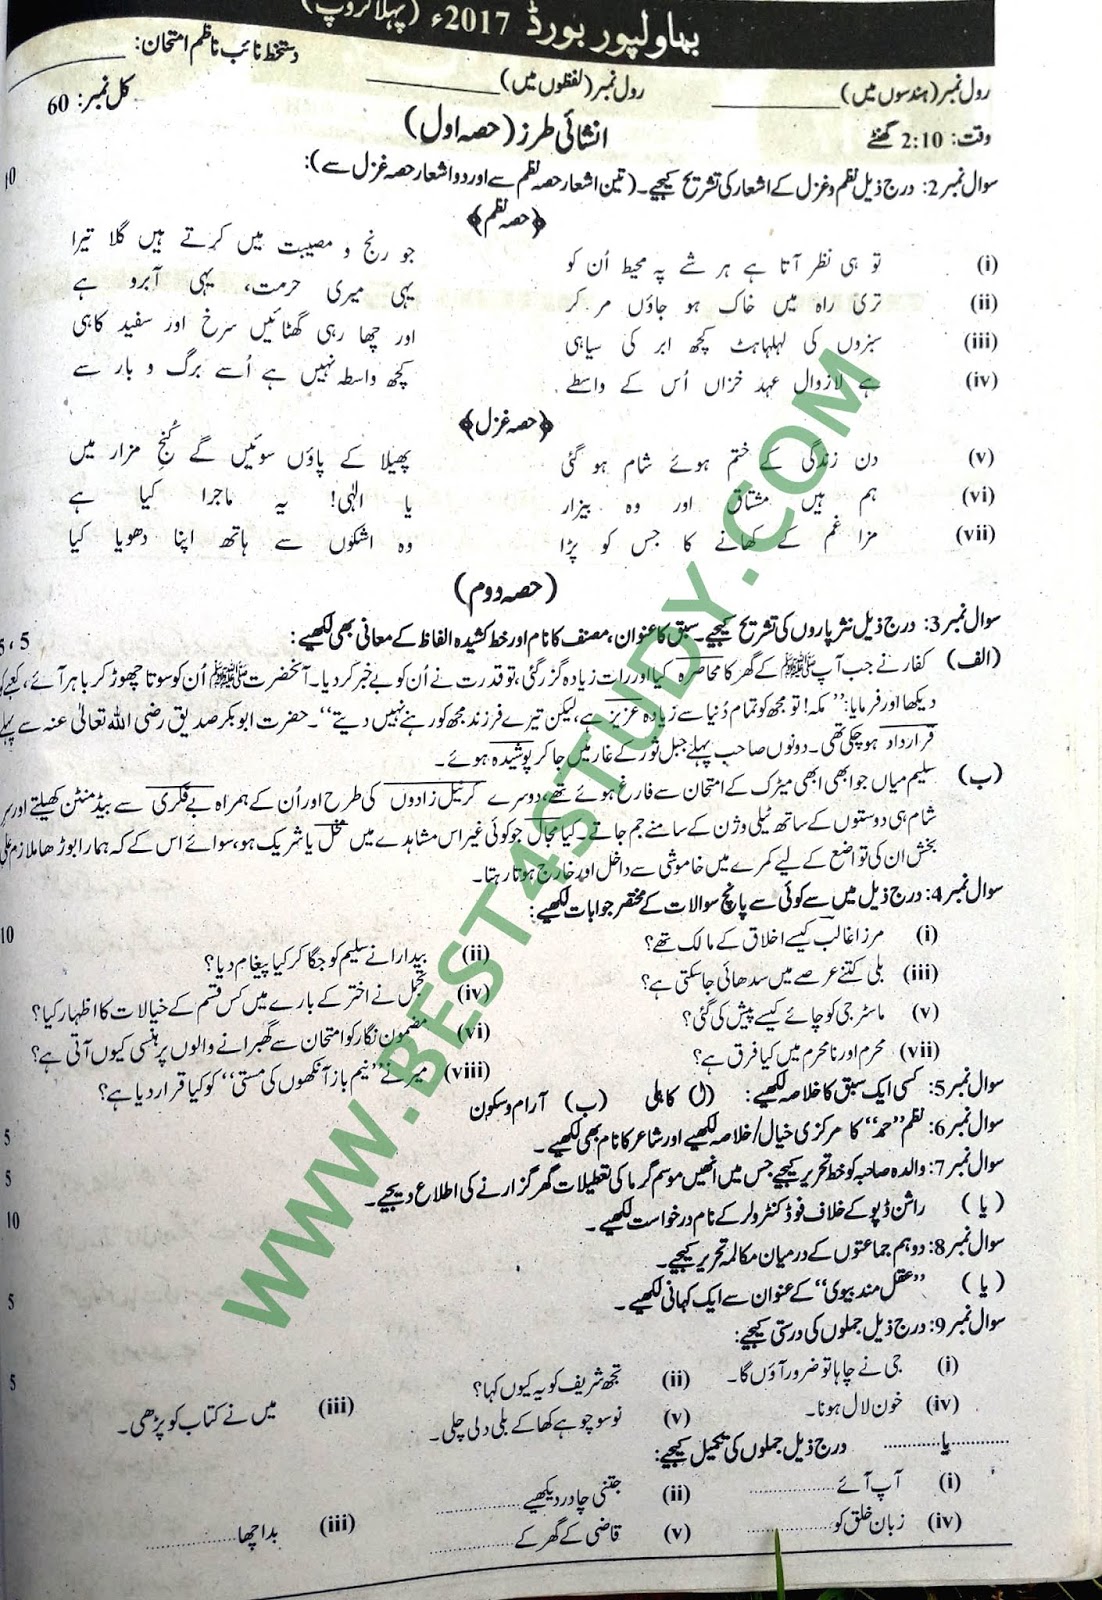 بہاولپور بورڈ 2017ء (پہلا گروپ)
رول نمبر (ہندسوں میں) ____________ رول نمبر (لفظوں میں) ____________ دستخط نائب ناظم امتحان:
وقت: 2:10 گھنٹے انشائی طرز (حصہ اول) کل نمبر: 60
سوال نمبر 2: درج ذیل نظم و غزل کے اشعار کی تشریح کیجیے۔ (تین اشعار حصہ نظم سے اور دو اشعار حصہ غزل سے): 10
﴿حصہ نظم﴾
(i) تو ہی نظر آتا ہے ہر شے پہ محیط اُن کو جو رنج و مصیبت میں کرتے ہیں گلا تیرا
(ii) تری راہ میں خاک ہو جاؤں مر کر یہی میری حرمت، یہی آبرو ہے
(iii) سبزوں کی لہلہاہٹ کچھ ابر کی سیاہی اور چھا رہی گھٹائیں سرخ اور سفید کاہی
(iv) ہے لازوال عہد خزاں اُس کے واسطے کچھ واسطہ نہیں ہے اُسے برگ و بار سے
﴿حصہ غزل﴾
(v) دن زندگی کے ختم ہوئے شام ہو گئی پھیلا کے پاؤں سوئیں گے کُنجِ مزار میں
(vi) ہم ہیں مشتاق اور وہ بیزار یا الٰہی! یہ ماجرا کیا ہے
(vii) مزا غم کے کھانے کا جس کو پڑا وہ اشکوں سے ہاتھ اپنا دھویا کیا
(حصہ دوم)
سوال نمبر 3: درج ذیل نثر پاروں کی تشریح کیجیے۔ سبق کا عنوان، مصنف کا نام اور خط کشیدہ الفاظ کے معانی بھی لکھیے: 5،5
(الف) کفار نے جب آپ ﷺ کے گھر کا محاصرہ کیا اور رات زیادہ گزر گئی، تو قدرت نے اُن کو بے خبر کر دیا۔ آنحضرت ﷺ اُن کو سوتا چھوڑ کر باہر آئے، کعبے کو
دیکھا اور فرمایا: "مکہ! تو مجھ کو تمام دُنیا سے زیادہ عزیز ہے، لیکن تیرے فرزند مجھ کو رہنے نہیں دیتے"۔ حضرت ابوبکر صدیق رضی اللہ تعالیٰ عنہ سے پہلے
قرارداد ہو چکی تھی۔ دونوں صاحب پہلے جبل ثور کے غار میں جا کر پوشیدہ ہوئے۔
(ب) سلیم میاں جو ابھی ابھی میڑک کے امتحان سے فارغ ہوئے تھے، دوسرے کرنیل زادوں کی طرح اور اُن کے ہمراہ بے فکری سے بیڈ منٹن کھیلتے اور سر
شام ہی دوستوں کے ساتھ ٹیلی وژن کے سامنے جم جاتے۔ کیا مجال جو کوئی غیر اس مشاہدے میں مخل یا شریک ہو، سوائے اس کے کہ ہمارا بوڑھا ملازم علی
بخش ان کی تواضع کے لیے کمرے میں خاموشی سے داخل اور خارج ہوتا رہتا۔
سوال نمبر 4: درج ذیل میں سے کوئی سے پانچ سوالات کے مختصر جوابات لکھیے: 10
(i) مرزا غالب کیسے اخلاق کے مالک تھے؟ (ii) بیدارا نے سلیم کو جگا کر کیا پیغام دیا؟
(iii) بلی کتنے عرصے میں سدھائی جا سکتی ہے؟ (iv) تجمل نے اختر کے بارے میں کس قسم کے خیالات کا اظہار کیا؟
(v) ماسٹر جی کو چائے کیسے پیش کی گئی؟ (vi) مضمون نگار کو امتحان سے گھبرانے والوں پر ہنسی کیوں آتی ہے؟
(vii) محرم اور نامحرم میں کیا فرق ہے؟ (viii) میر نے "نیم باز آنکھوں کی مستی" کو کیا قرار دیا ہے؟
سوال نمبر 5: کسی ایک سبق کا خلاصہ لکھیے: (ا) کاہلی (ب) آرام و سکون
سوال نمبر 6: نظم "حمد" کا مرکزی خیال/خلاصہ لکھیے اور شاعر کا نام بھی لکھیے۔ 5
سوال نمبر 7: والدہ صاحبہ کو خط تحریر کیجیے جس میں انھیں موسم گرما کی تعطیلات گھر گزارنے کی اطلاع دیجیے۔ 5
(یا) راشن ڈپو کے خلاف فوڈ کنٹرولر کے نام درخواست لکھیے۔ 10
سوال نمبر 8: دو ہم جماعتوں کے درمیان مکالمہ تحریر کیجیے۔
(یا) "عقل مند بیوی" کے عنوان سے ایک کہانی لکھیے۔ 5
سوال نمبر 9: درج ذیل جملوں کی درستی کیجیے:
(i) جی نے چاہا تو ضرور آؤں گا۔ (ii) تجھ شریف کو یہ کیوں کہا؟ (iii) میں نے کتاب کو پڑھی۔ 5
(iv) خون لال ہونا۔ (v) نو سو چوہے کھا کے بلی دلی چلی۔
............یا............ درج ذیل جملوں کی تکمیل کیجیے:
(i) آپ آئے ............ (ii) جتنی چادر دیکھیے ............ (iii) بد اچھا ............
(iv) زبان خلق کو ............ (v) قاضی کے گھر کے ............
WWW.BEST4STUDY.COM